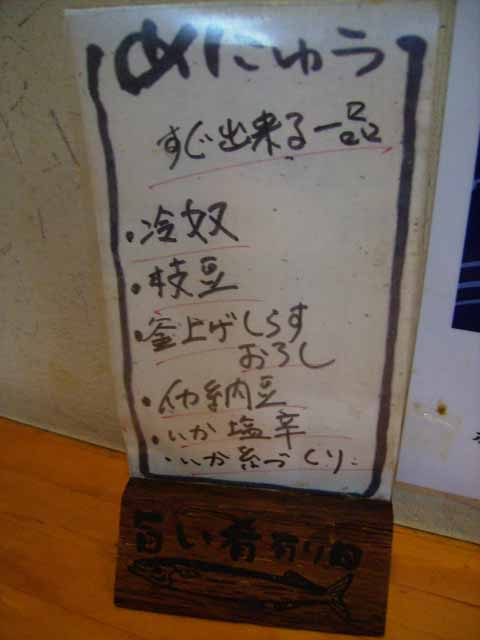 めにゅう
すぐ出来る一品
・冷奴
・枝豆
・釜上げしらす
おろし
・イカ納豆
・いか塩辛
・いか糸づくり
旨い肴有り〼